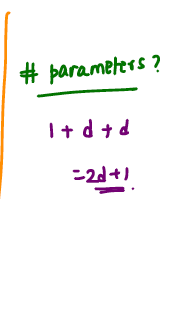 # parameters?
1 + d + d
= 2d + 1.